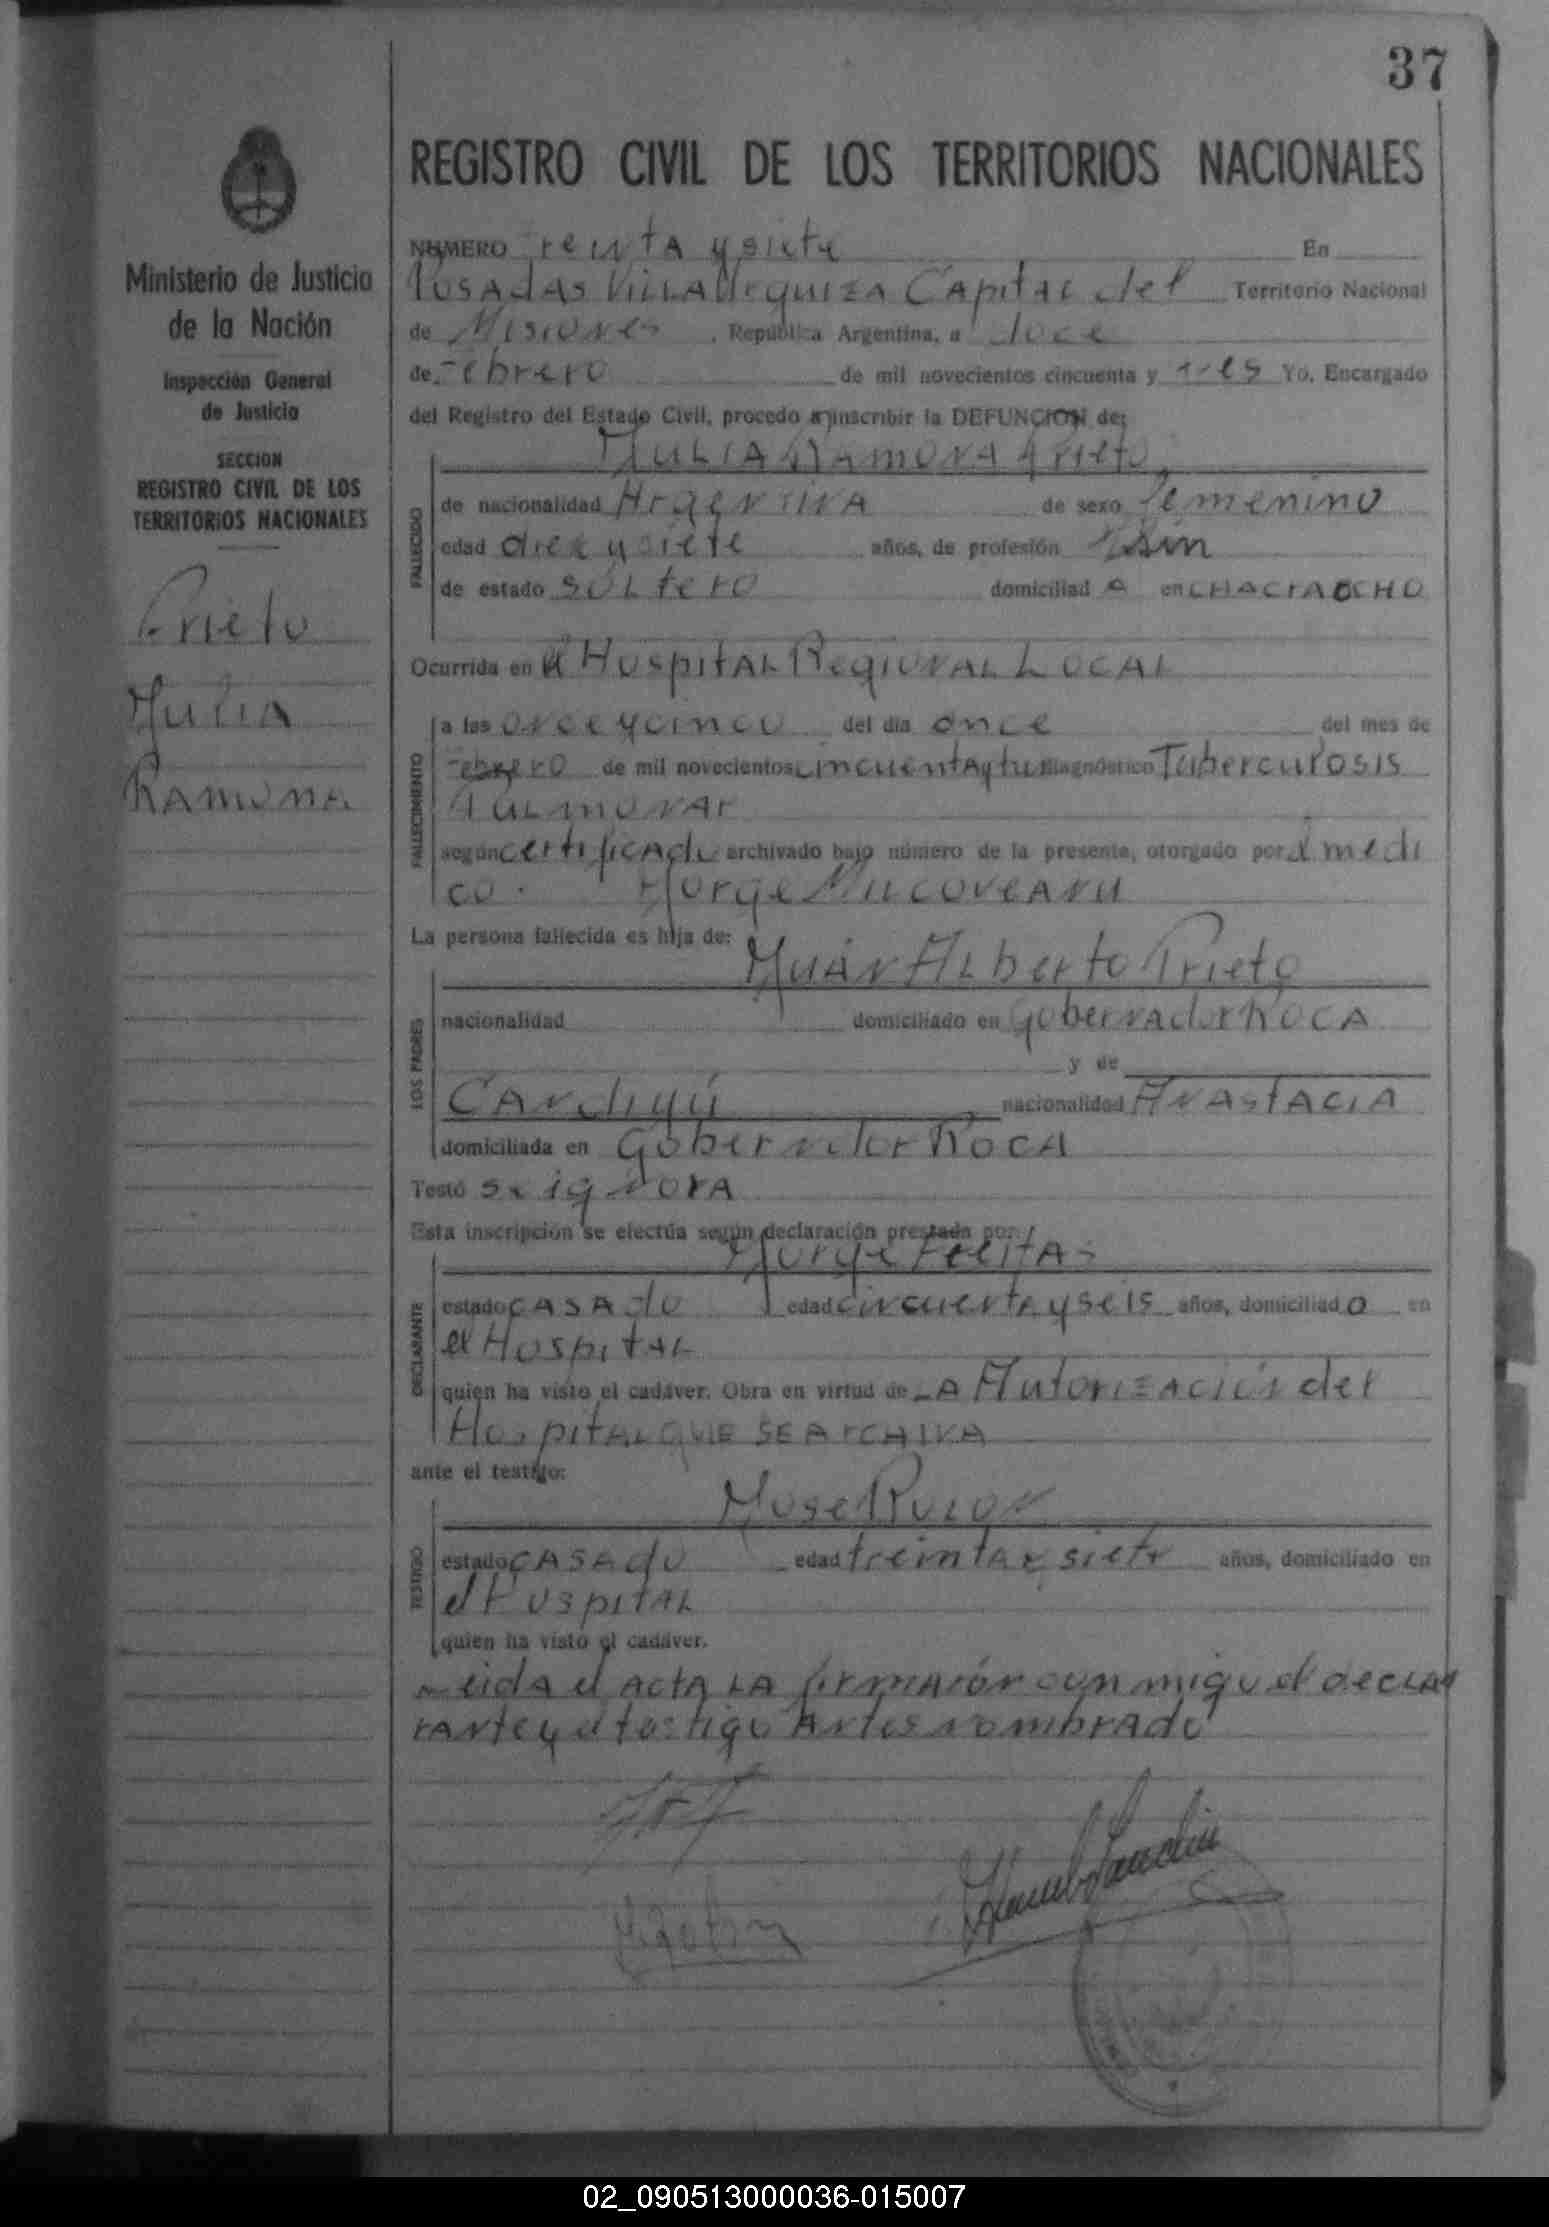 37
REGISTRO CIVIL DE LOS TERRITORIOS NACIONALES
Ministerio de Justicia
de la Nación
Inspección General
de Justicia
SECCION
REGISTRO CIVIL DE LOS
TERRITORIOS NACIONALES
Prieto
Julia
Ramona
NUMERO Treinta y siete En
Posadas Villa Urquiza Capital del Territorio Nacional
de Misiones, República Argentina, a doce
de Febrero de mil novecientos cincuenta y tres Yo, Encargado
del Registro del Estado Civil, procedo a inscribir la DEFUNCION de:
Julia Ramona Prieto
FALLECIDO
de nacionalidad Argentina de sexo femenino
edad diez y siete años, de profesión sin
de estado soltero domiciliad a en chacra ocho
Ocurrida en el Hospital Regional Local
FALLECIMIENTO
a las once y cinco del día once del mes de
Febrero de mil novecientos cincuenta y diagnóstico Tuberculosis
Pulmonar
según certificado archivado bajo número de la presente, otorgado por el medi
co. Jorge
La persona fallecida es hija de:
Juán Alberto Prieto
LOS PADRES
nacionalidad domiciliado en Gobernador Roca
y de
Candiyú nacionalidad Anastacia
domiciliada en Gobernador Roca
Testó se ignora
Esta inscripción se efectúa según declaración prestada por:
Jorge Freitas
DECLARANTE
estado casado edad cincuenta y seis años, domiciliad o en
el Hospital
quien ha visto el cadáver. Obra en virtud de La Autorización del
Hospital que se archiva
ante el testigo:
Jose Rolon
TESTIGO
estado casado edad treinta y siete años, domiciliado en
el Hospital
quien ha visto el cadáver.
Leida el acta la firmarón conmigo el decla
rante y el testigo antes nombrado
02_090513000036-015007